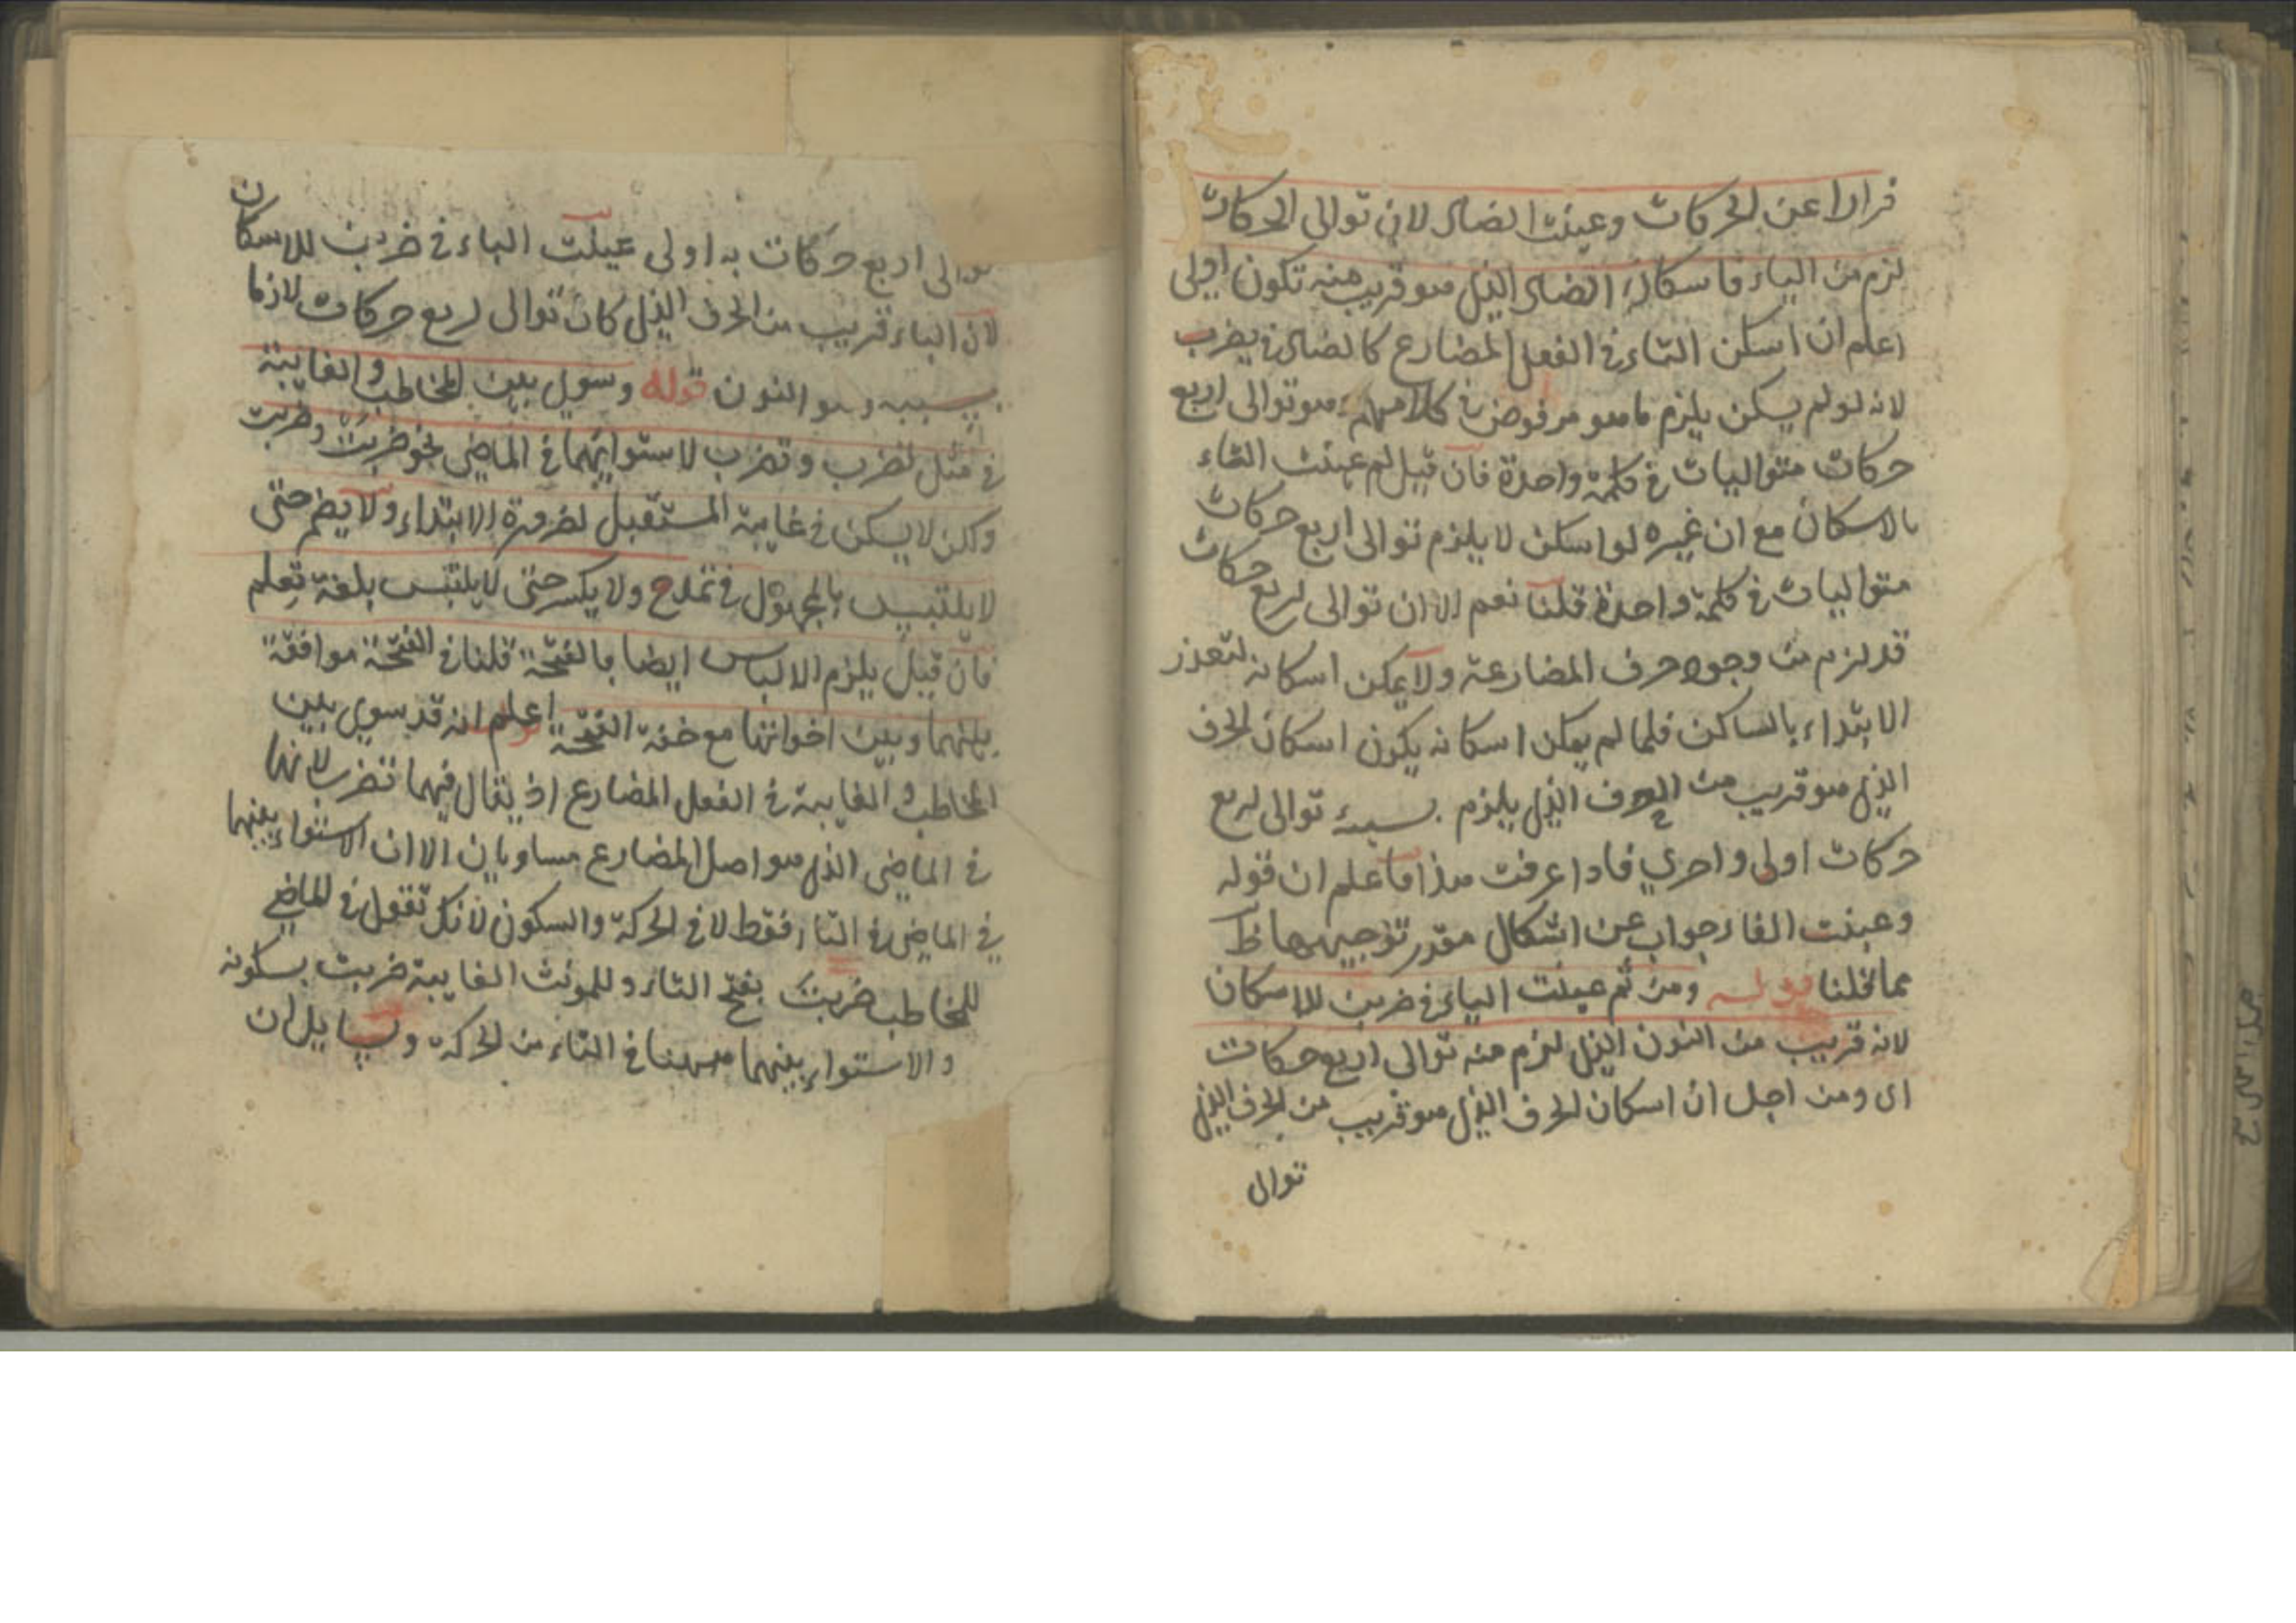 فرارا عن الحركات وعينت الضاد لان توالى الحركات
لزم من الياء فاسكان الضاد الذى هو قريب منه تكون اولى
اعلم ان اسكن الفاء فى الفعل المضارع كالضاد فى يضرب
لانه لو لم يسكن يلزم ما هو مرفوض فى كلامهم هو توالى اربع
حركات متواليات فى كلمة واحدة فان قيل لم عينت الفاء
بالاسكان مع ان غيره لو اسكن لا يلزم توالى اربع حركات
متواليات فى كلمة واحدة قلنا نعم الا ان توالى اربع حركات
قد لزم من وجود حرف المضارعة ولا يمكن اسكانه لتعذر
الابتداء بالساكن فلما لم يمكن اسكانه يكون اسكان الحرف
الذى هو قريب من الحرف الذى يلزم بسببه توالى اربع
حركات اولى واحرى فاذا عرفت هذا فاعلم ان قوله
وعينت الفاء جواب عن اشكال مقدر توجيهه ظ
مما قلنا قوله ومن ثم عينت الباء فى ضربن للاسكان
لانه قريب من النون الذى لزم منه توالى اربع حركات
اى ومن اجل ان اسكان الحرف الذى هو قريب من الحرف الذى
توالى
توالى اربع حركات به اولى عينت الباء فى ضربن للاسكان
لان الباء قريب من الحرف الذى كان توالى اربع حركات لازما
بسببه وهو النون قوله وسوى بين المخاطب والغايبة
فى مثل تضرب وتضرب لاستوايهما فى الماضى نحو ضربت وضربت
ولكن لا يسكن فى غايبة المستقبل لضرورة الابتداء ولا يضم حتى
لا يلتبس بالمجهول فى تمدح ولا يكسر حتى لا يلتبس بلغة تعلم
فان قيل يلزم الالباس ايضا بالفتحة قلنا فى الفتحة موافقة
بينهما وبين اخواتها مع خفة الفتحة اعلم انه قد سوى بين
المخاطب والغايبة فى الفعل المضارع اذ يقال فيهما تضرب لانهما
فى الماضى الذى هو اصل المضارع مساويان الا ان الاستواء بينهما
فى الماضى فى التاء فقط لا فى الحركة والسكون لانك تقول فى الماضى
للمخاطب ضربت بفتح التاء وللمونث الغايبة ضربت بسكونه
والاستواء بينهما ههنا فى التاء من الحركة ولسايل ان